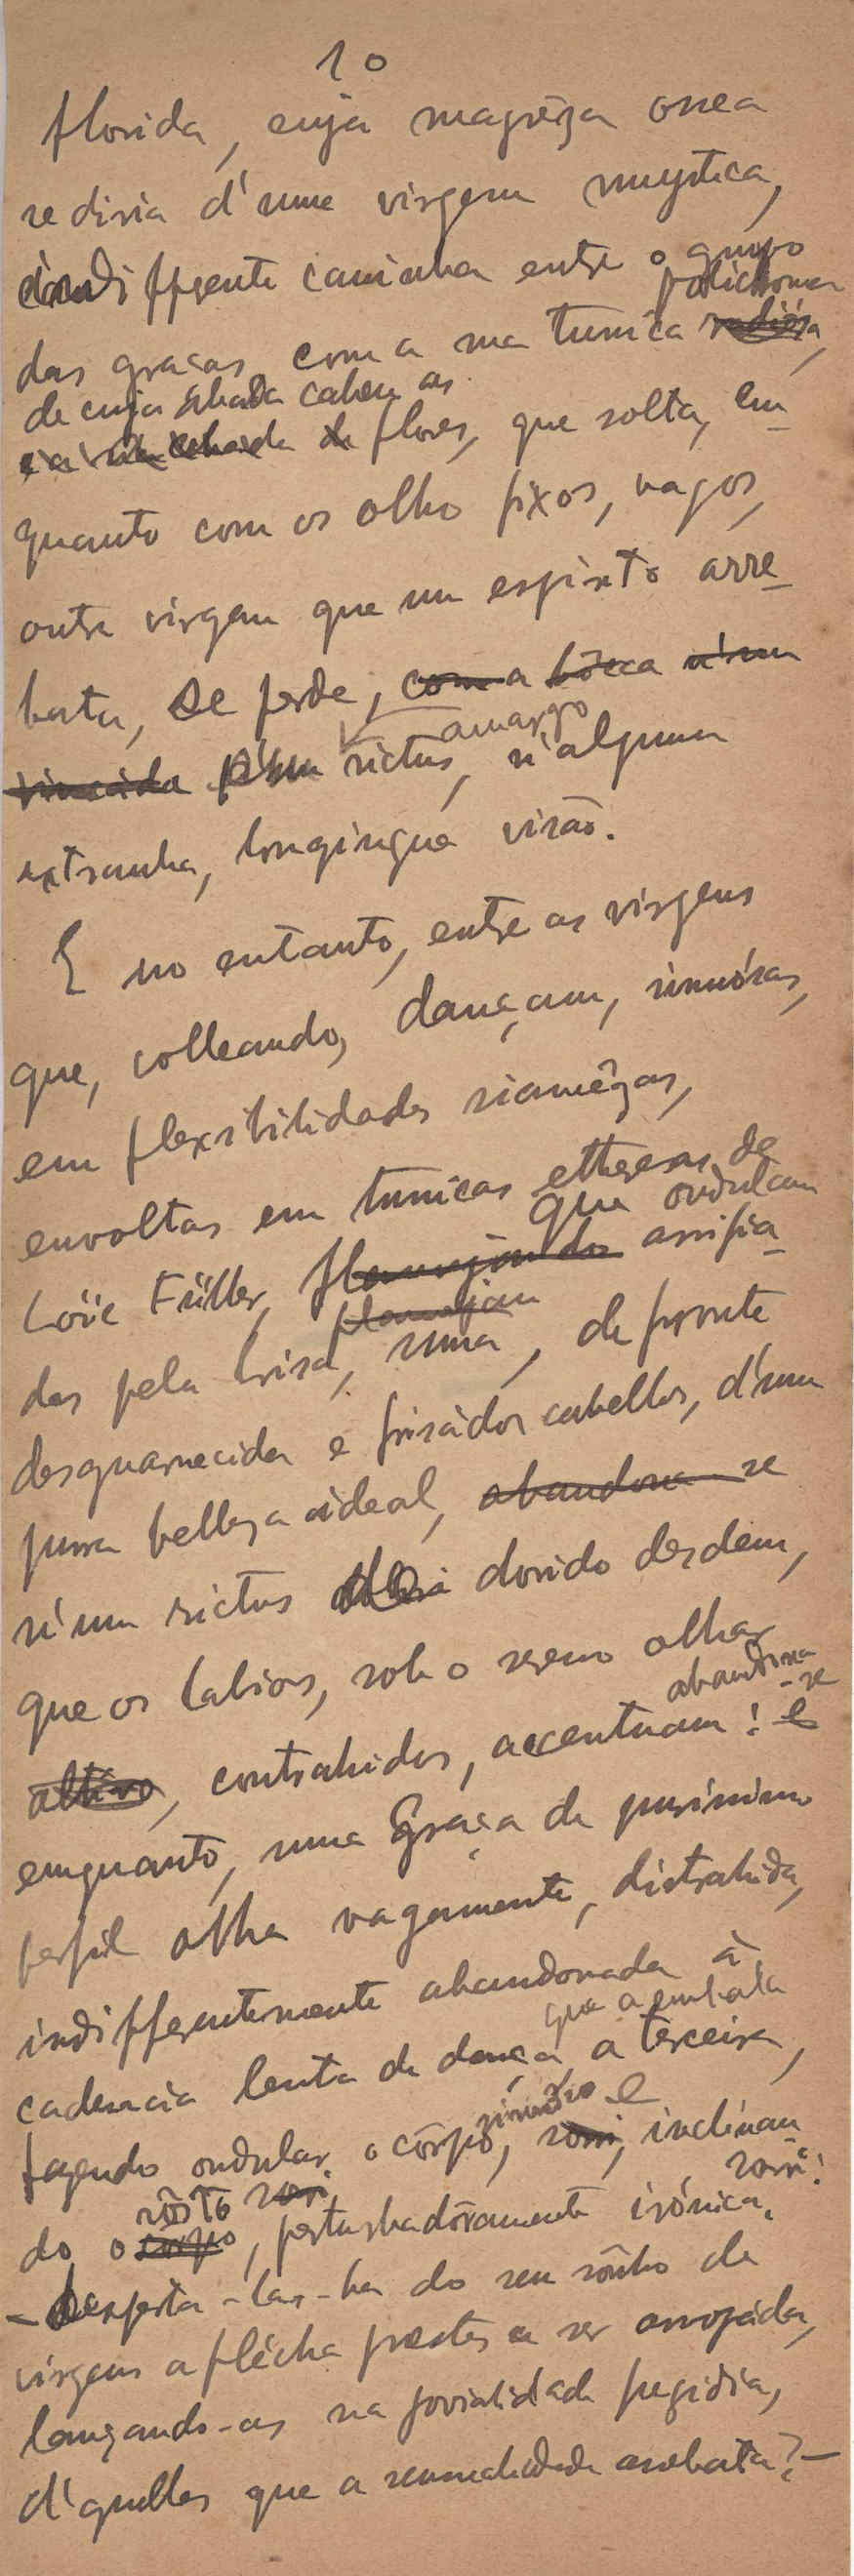 10
florida, cuja magrêza ossea
se diria d'uma virgem mystica,
indifferente caminha entre o grupo
polichroma
das graças, com a sua tunica radiósa,
de cuja sobrada cahem as
flores, que solta, em-
quanto com os olho fixos, vagos,
outra virgem que um espirito arre-
bata, se perde, com a bôcca n'um
amargo
vincada n'um rictus, n'alguma
extranha, longingua visão.
E no entanto, entre as virgens
que, colleando, dançam, sinuósas,
em flexibilidades siamêzas,
envoltas em tunicas ethereas de
que ondulam
Loïe Füller, flammejando arrifia-
flammejam
das pela brisa, uma, de fronte
desguarnecida e frisádos cabellos, d'uma
pura belleza ideal, abandona-se
n'um rictus de dorido desdem,
que os labios, sob o sereno olhar
abandona-se
altivo, contrahidos, accentuam! e
emquanto, uma Graça de purissimo
perfil olha vagamente, distrahida,
indifferentemente abandonada á
que a embala
cadencia lenta da dança, a terceira,
sinuóso e
fazendo ondular o côrpo, sorri, inclinan
rôsto sorri, sorri!
do o corpo, perturbadôramente irónica.
- Desperta-las-ha do seu sônho de
virgens a flécha prestes a ser arrojada,
lançando-as na jovialidade fugidia,
d'aquelles que a sensualidade arrebata? -